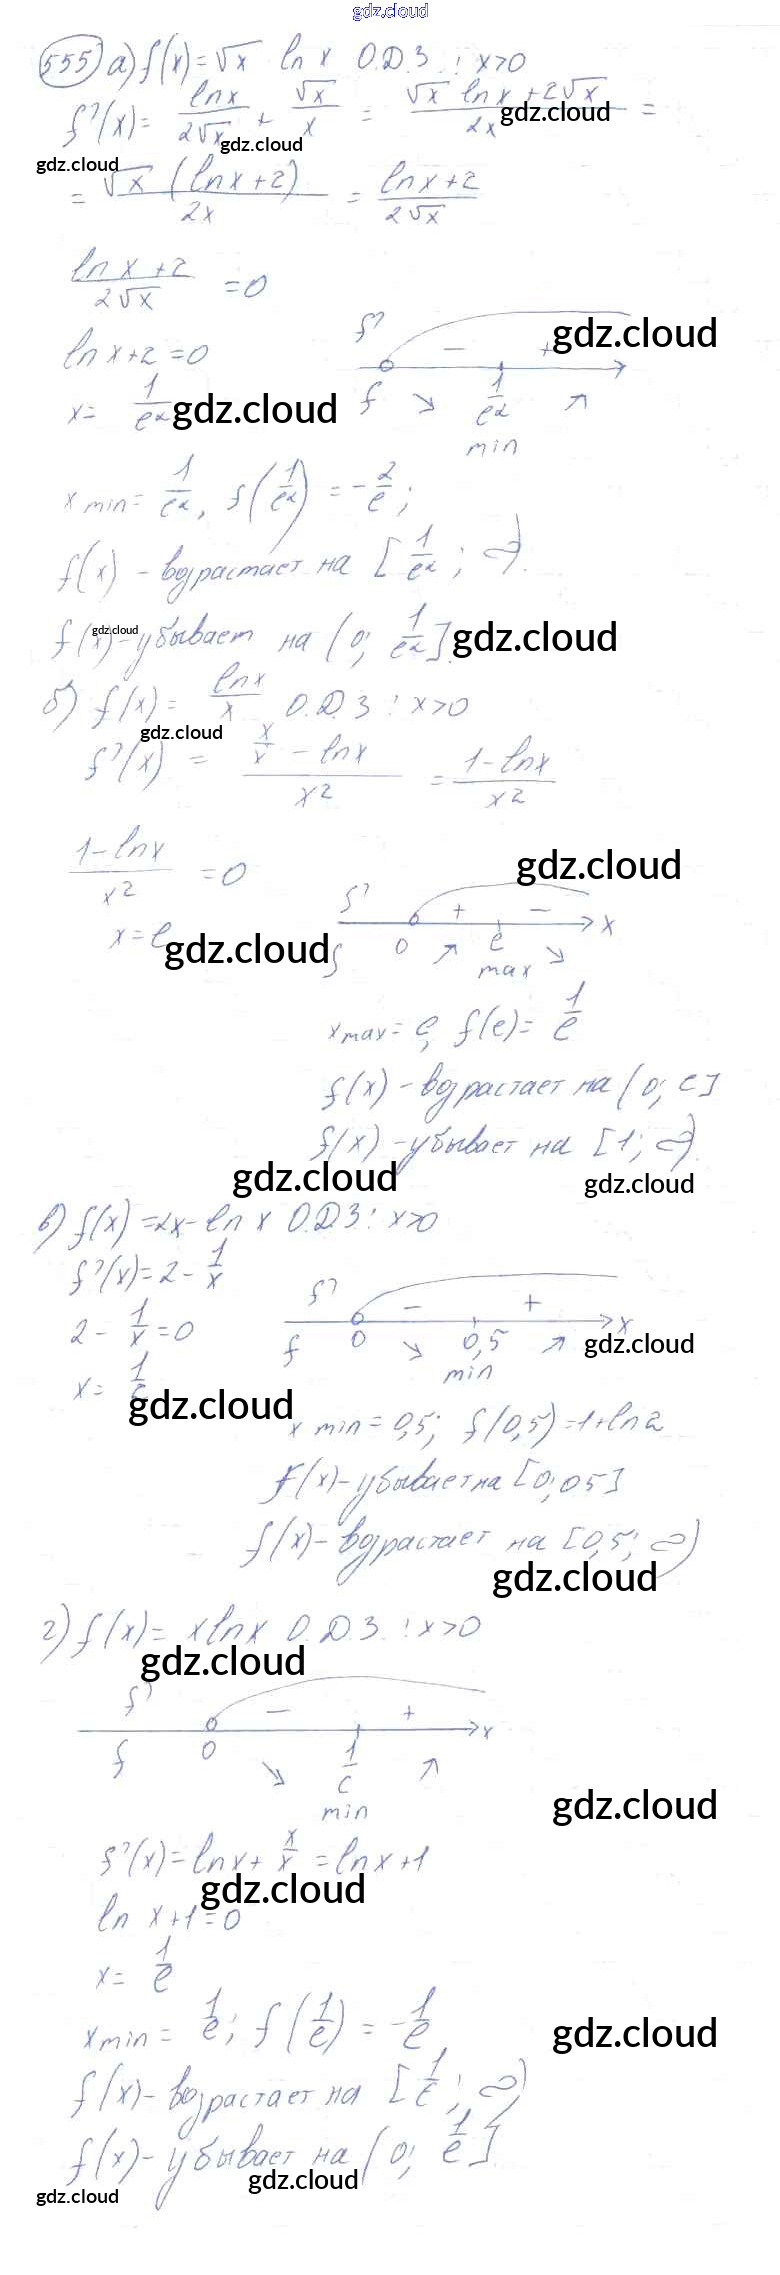 gdz.cloud
555 а) f(x) = √x ln x О.Д.З.: x>0
f'(x) = lnx/2√x + √x/x = √x lnx + 2√x/2x =
gdz.cloud
gdz.cloud
gdz.cloud
= √x (lnx+2)/2x = lnx+2/2√x
ln x+2/2√x = 0
ln x+2 = 0
f' - +
gdz.cloud
x = 1/e²
gdz.cloud
f ↘ 1/e² ↗
min
x min = 1/e², f(1/e²) = -2/e;
f(x) - возрастает на [1/e²; ∞).
f(x) - убывает на (0; 1/e²].
gdz.cloud
gdz.cloud
б) f(x) = lnx/x О.Д.З: x>0
gdz.cloud
f'(x) = x/x - lnx/x² = 1-lnx/x²
1-lnx/x² = 0
gdz.cloud
f' + - x
x = e
gdz.cloud
f 0 ↗ e ↘
max
x max = e, f(e) = 1/e
f(x) - возрастает на (0; e]
f(x) - убывает на [1; ∞).
gdz.cloud
gdz.cloud
в) f(x) = 2x - ln x О.Д.З: x>0
f'(x) = 2 - 1/x
f' - + x
2 - 1/x = 0
f 0 ↘ 0,5 ↗
gdz.cloud
min
x = 1/2
gdz.cloud
x min = 0,5; f(0,5) = 1+ln2
f(x) - убывает на [0; 05]
f(x) - возрастает на [0,5; ∞)
gdz.cloud
г) f(x) = x ln x О.Д.З.: x>0
gdz.cloud
f' - + x
f 0 ↘ 1/e ↗
min
gdz.cloud
f'(x) = lnx + x/x = lnx+1
gdz.cloud
ln x+1 = 0
x = 1/e
x min = 1/e; f(1/e) = -1/e
gdz.cloud
f(x) - возрастает на [1/e; ∞)
f(x) - убывает на (0; 1/e].
gdz.cloud
gdz.cloud